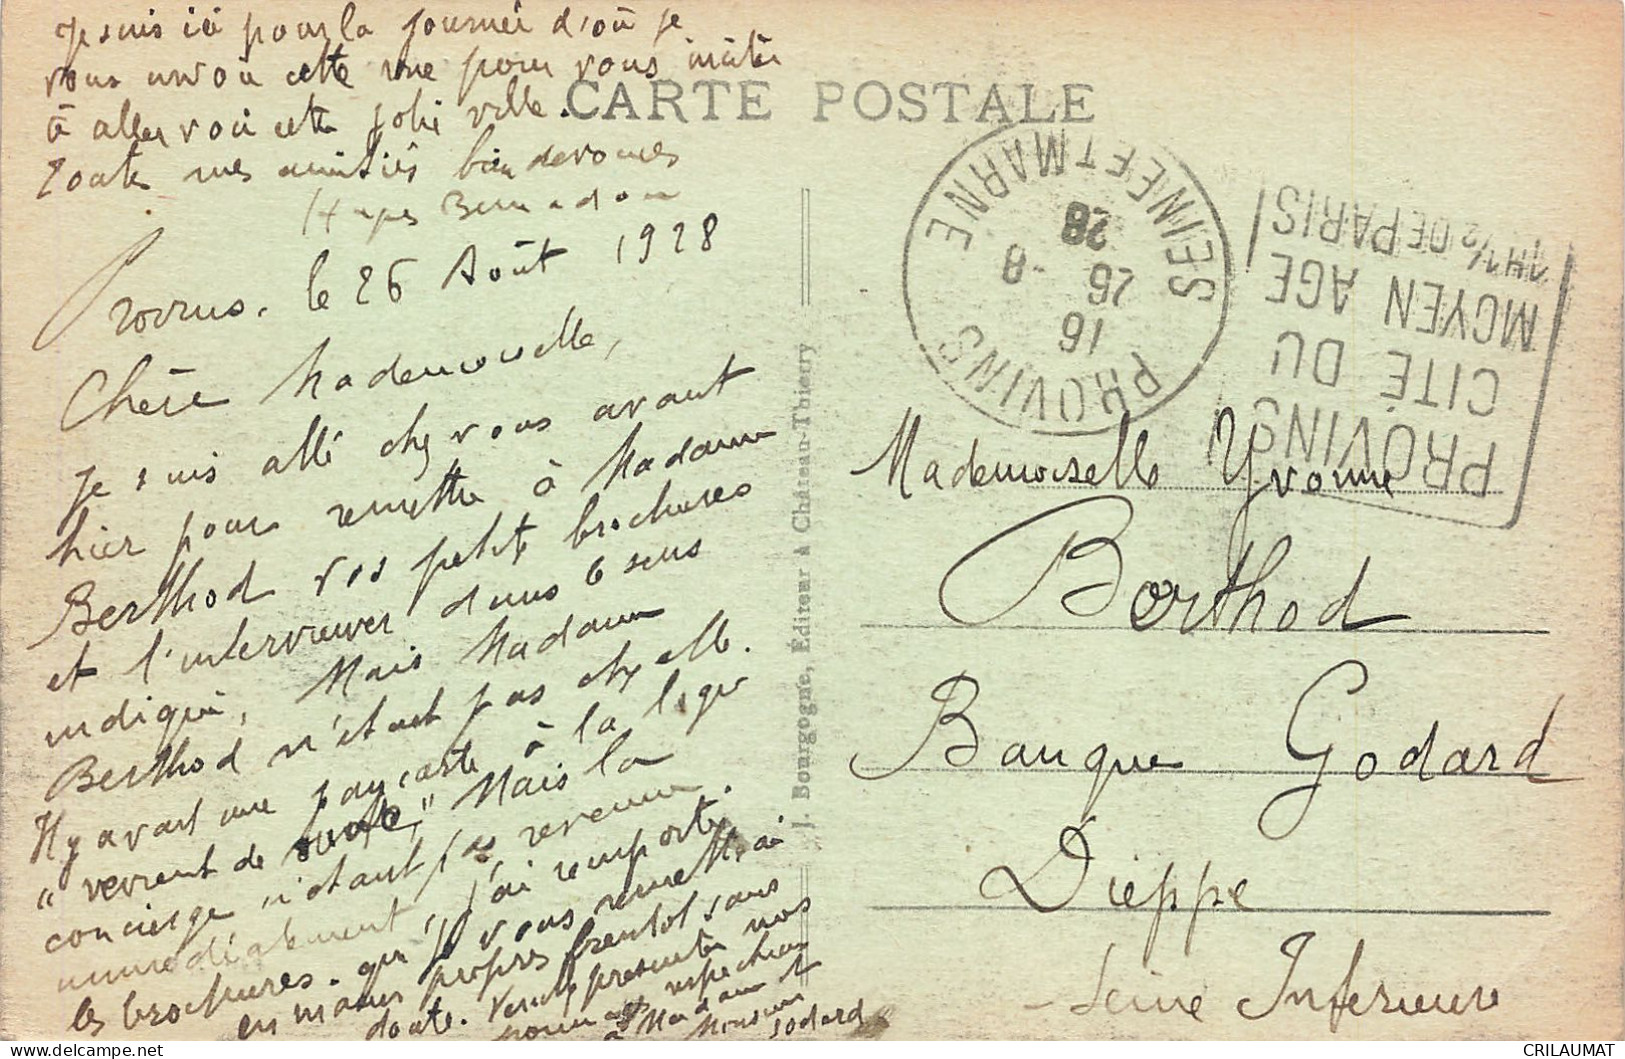 Je suis ici pour la journée d'où je
vous envoie cette vue pour vous inviter
à aller voir cette jolie ville.
Toutes mes amitiés bien
CARTE POSTALE
Provins, le 26 Août 1928
Chère Mademoiselle,
Je suis allé chez vous avant
hier pour remettre à Madame
Berthod vos petites brochures
et l'interviewer dans le sens
indiqué, Mais Madame
Berthod n'était pas chez elle.
Il y avait une pancarte à la loge
"revient de suite," Mais la
concierge n'étant pas revenue
immédiatement, j'ai remporté
les brochures. que je vous remettrai
en mains propres bientôt sans
doute. Veuillez présenter nos
hommages respectueux
à Madame et
Monsieur
Godard
J. Bourgogne, Editeur à Château-Thierry
PROVINS
SEINE ET MARNE
16
26 -8
28
PROVINS
CITÉ DU
MOYEN AGE
1H ½ DE PARIS
Mademoiselle Yvonne
Berthod
Banque Godard
Dieppe
Seine Inférieure
CRILAUMAT